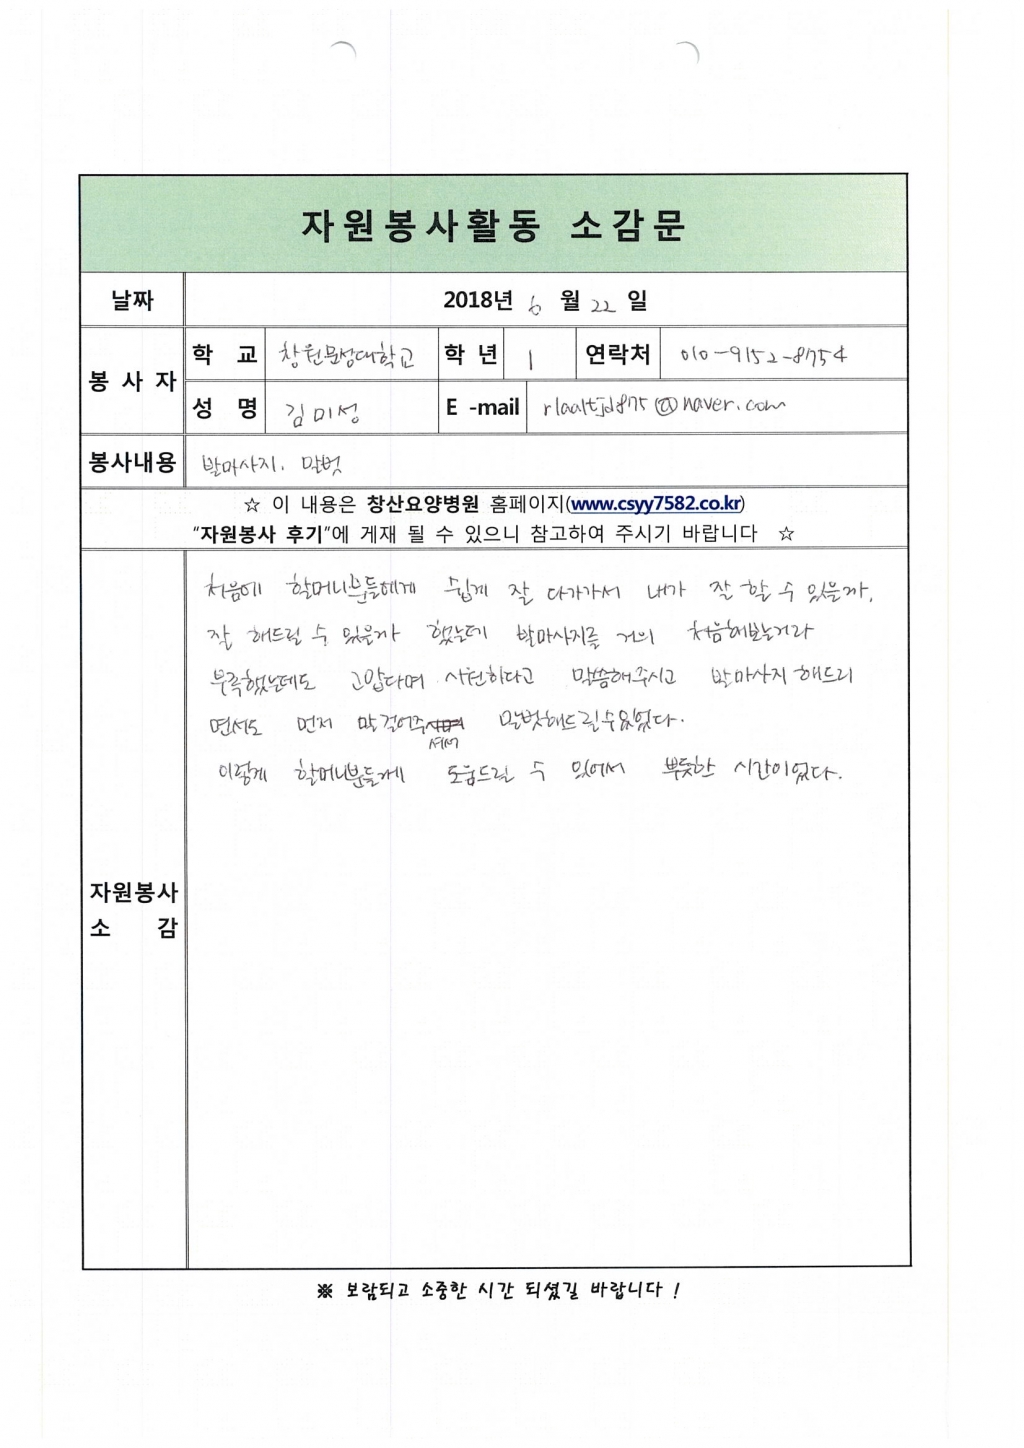 자원봉사활동 소감문
날짜 2018년 6 월 22 일
봉 사 자
학 교 창원문성대학교 학 년 1 연락처 010-9152-8754
성 명 김미성 E -mail rlaaltjd875@naver.com
봉사내용 발마사지, 말벗
☆ 이 내용은 창산요양병원 홈페이지(www.csyy7582.co.kr)
"자원봉사 후기"에 게재 될 수 있으니 참고하여 주시기 바랍니다 ☆
처음에 할머니분들에게 쉽게 잘 다가가서 내가 잘 할 수 있을까,
잘 해드릴 수 있을까 했는데 발마사지를 거의 처음해보는거라
부족했는데도 고맙다며 시원하다고 말씀해주시고 발마사지 해드리
면서도 먼저 말 걸어주셔서 말벗해드릴수있었다.
이렇게 할머니분들께 도움드릴 수 있어서 뿌듯한 시간이었다.
자원봉사
소 감
※ 보람되고 소중한 시간 되셨길 바랍니다 !